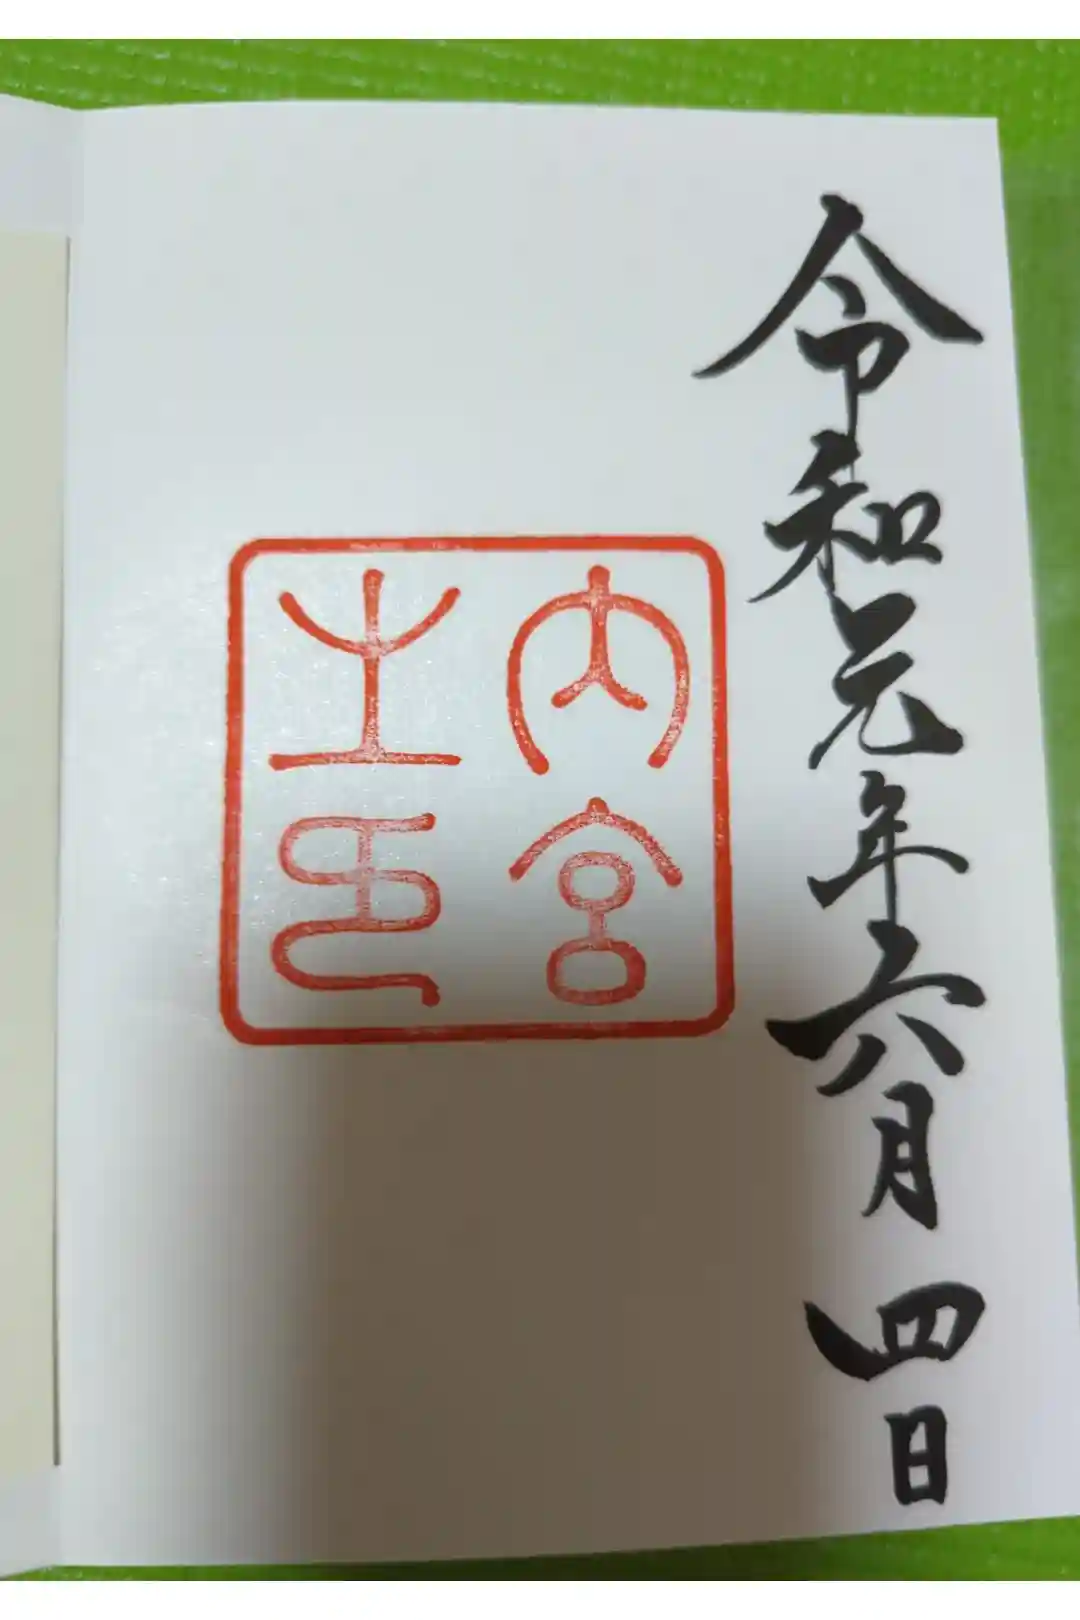 令和元年六月四日
内宮
之印